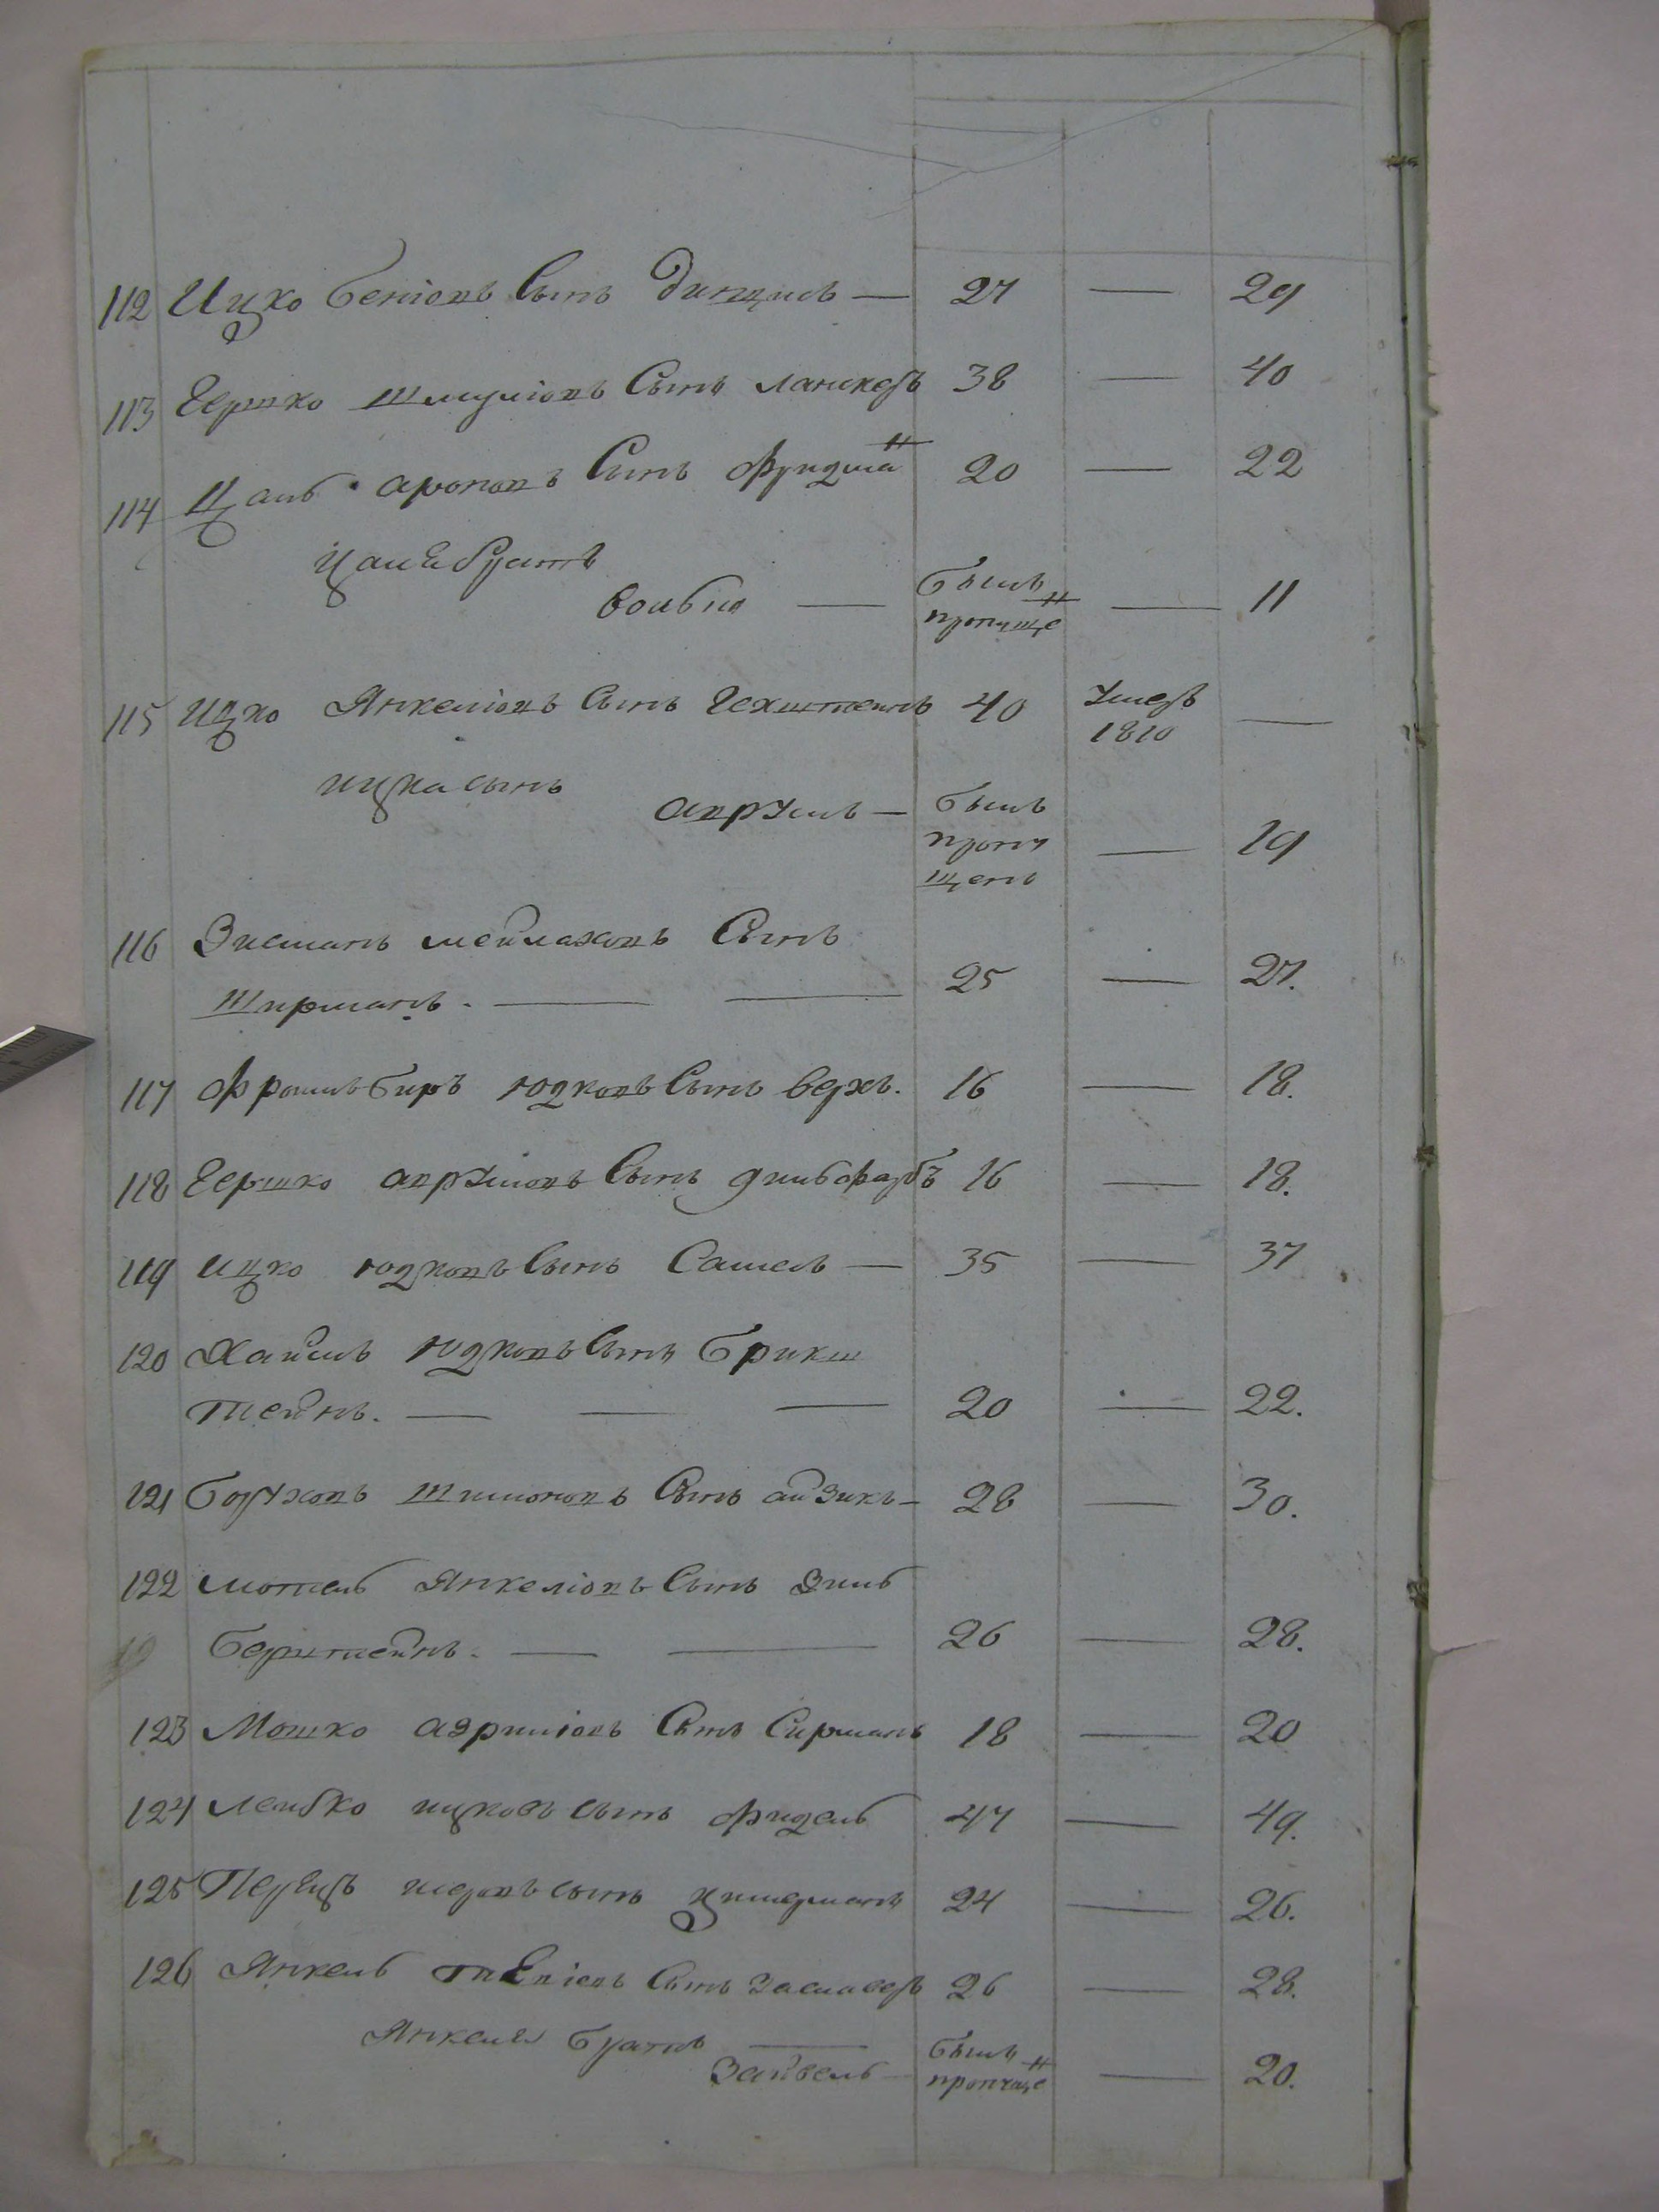 112 Ицко беніовъ Сынъ — 27 — 29
113 Гершко шмуліовъ Сынъ ланскеръ 38 — 40
114 ароновъ Сынъ фридма н 20 — 22
братъ
вольфъ — былъ
пропуще н — 11
115 ицко Янкеліовъ Сынъ Гехштейнъ 40 Умеръ
1810 —
ицка сынъ
аврумъ — былъ
пропу
щенъ — 19
116 Зисманъ мейлаховъ Сынъ
Ширманъ. — — 25 — 27.
117 фроимъ биръ юдковъ Сынъ верхъ. 16 — 18.
118 Гершко аврумовъ Сынъ 16 — 18.
119 ицко юдковъ Сынъ — 35 — 37
120 Хаимъ юдковъ Сынъ брикш
тейнъ. — — — 20 — 22.
121 боруховъ шимоновъ Сынъ айзикъ — 28 — 30.
122 мотель Янкеліовъ Сынъ зиль
берштейнъ. — — 26 — 28.
123 Мошко Сынъ Сирманъ 18 — 20
124 лейбко ицковъ сынъ фидель 47 — 49.
125 Перецъ сынъ цимерманъ 24 — 26.
126 Янкель Сынъ Заславеръ 26 — 28.
Янкеля братъ —
Зайвель — былъ
пропуще н — 20.